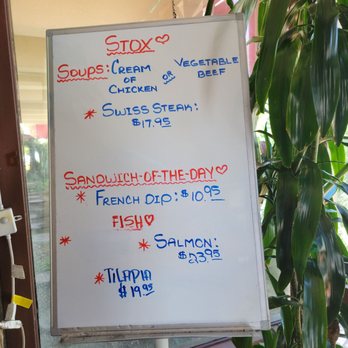 STOX
SOUPS: CREAM OF CHICKEN OR VEGETABLE BEEF
* SWISS STEAK:
$17.95
SANDWICH-OF-THE-DAY
* FRENCH DIP: $10.95
FISH
*
* SALMON:
$23.95
* TILAPIA
$19.95